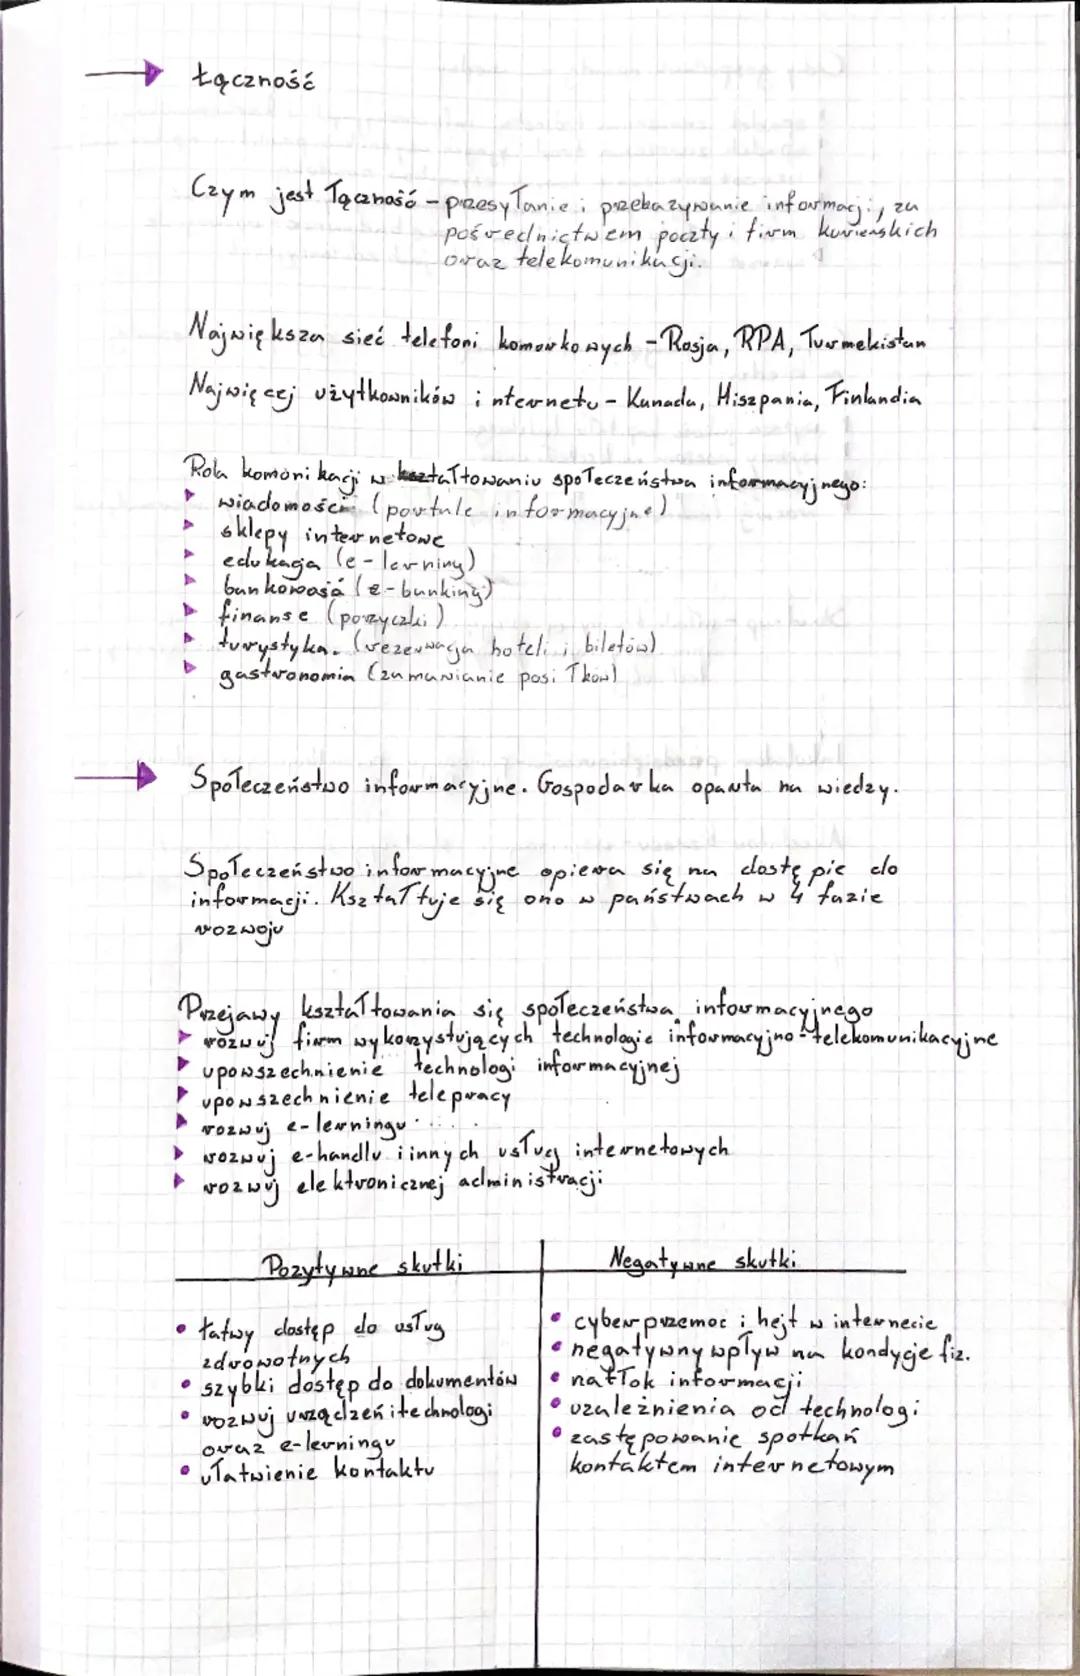 łączność
Czym jest łączność - przesyłanie i przekazywanie informacji, za
pośrednictwem poczty i firm kurierskich
oraz telekomunikacji.
Największa sieć telefoni komorkowych - Rosja, RPA, Turmekistan
Najwięcej użytkowników internetu - Kanada, Hiszpania, Finlandia
Rola komonikacji w kształtowaniu społeczeństwa informacyjnego:
wiadomości (portale informacyjne)
sklepy internetowe
edukacja (e-lerning)
bankowość (e-banking)
finanse (pożyczki)
turystyka. (rezerwacja hoteli i biletów)
gastronomia (zamawianie posiłków)
Społeczeństwo informacyjne. Gospodarka oparta na wiedzy.
Społeczeństwo informacyjne opiera się na dostępie do
informacji. Kształtuje się ono w państwach w 4 fazie
rozwoju
Przejawy kształtowania się społeczeństwa informacyjnego
rozwuj firm wykorzystujących technologie informacyjno-telekomunikacyjne
upowszechnienie technologi informacyjnej
upowszechnienie telepracy
rozwuj e-lerningu
rozwuj e-handlu i innych usług internetowych
rozwuj elektronicznej administracji
Pozytywne skutki Negatywne skutki
• łatwy dostęp do usług
zdrowotnych
• szybki dostęp do dokumentów
• rozwuj urządzeń i technologi
oraz e-lerningu
• ułatwienie kontaktu
• cyberprzemoc i hejt w internecie
• negatywny wpływ na kondycje fiz.
• natłok informacji
• uzależnienia od technologi
• zastępowanie spotkań
kontaktem internetowym